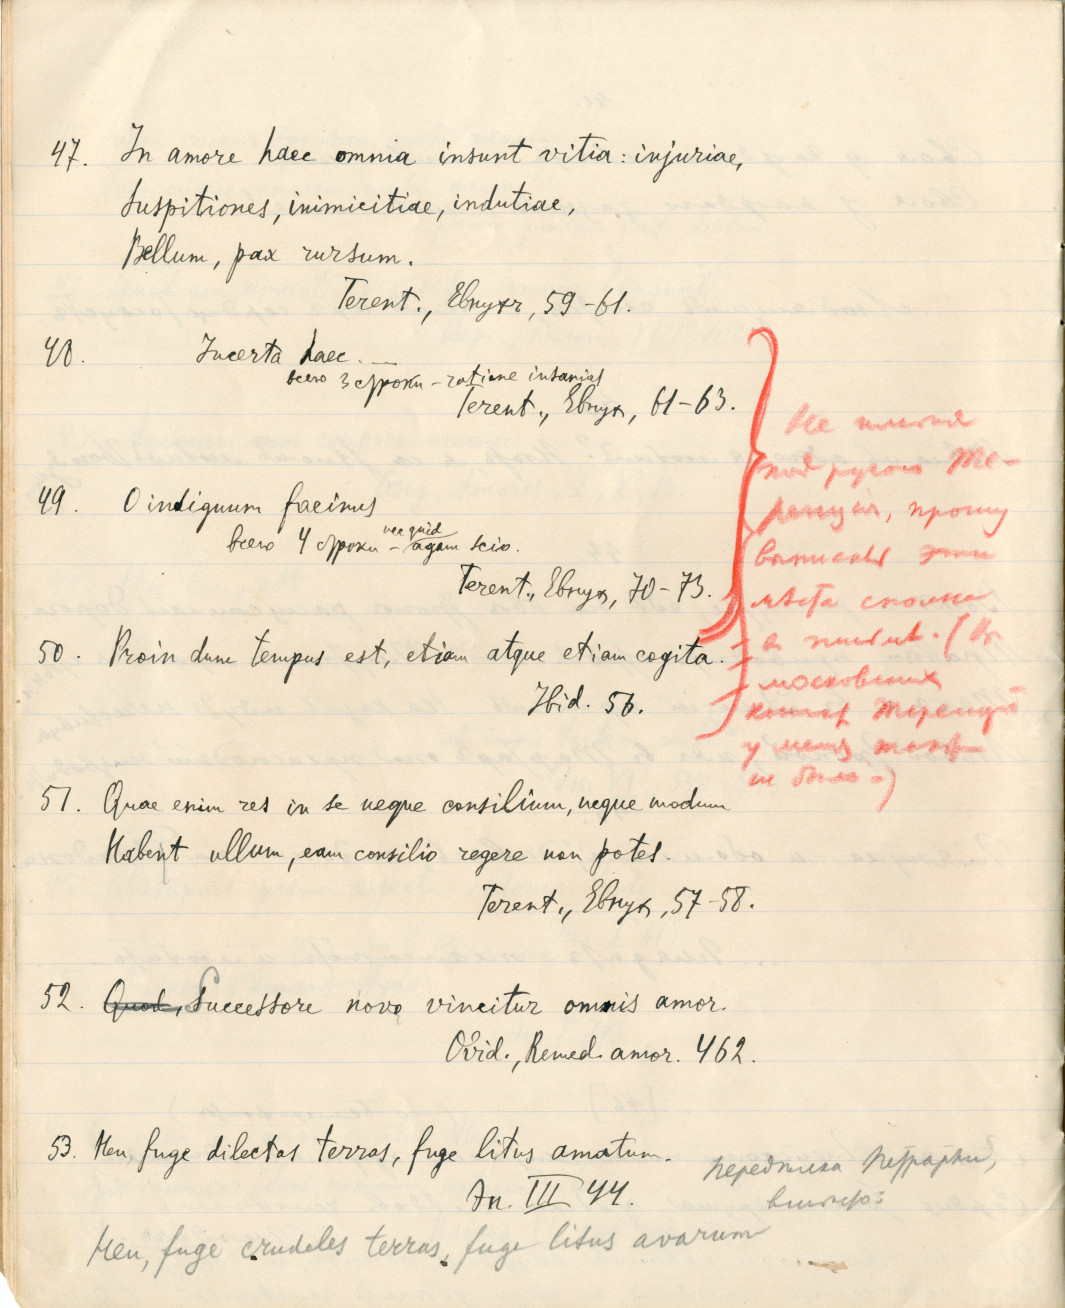 47. In amore haec omnia insunt vitia: injuriae,
Suspitiones, inimicitiae, indutiae,
Bellum, pax rursum.
Terent., Евнух, 59-61.
48. Incerta haec.—
всего 3 строки - ratione insanias
Terent., Евнух, 61-63.
49. O indignum facinus
всего 4 строки - nec quid agam scio.
Terent., Евнух, 70-73.
50. Proin dum tempus est, etiam atque etiam cogita.
Ibid. 56.
Не имея
под рукою Те-
ренция, прошу
выписать эти
места сполна
(Въ
московских
книгах Теренція
у меня тоже
не было.)
51. Quae enim res in se neque consilium, neque modum
Habent ullum, eam consilio regere non potes.
Terent., Евнух, 57-58.
52. Quod, Successore novo vincitur omnis amor.
Ovid., Remed. amor. 462.
53. Heu fuge dilectas terras, fuge litus amatum.
Эн. III 44.
переделка Петрарки,
Heu, fuge crudeles terras, fuge litus avarum